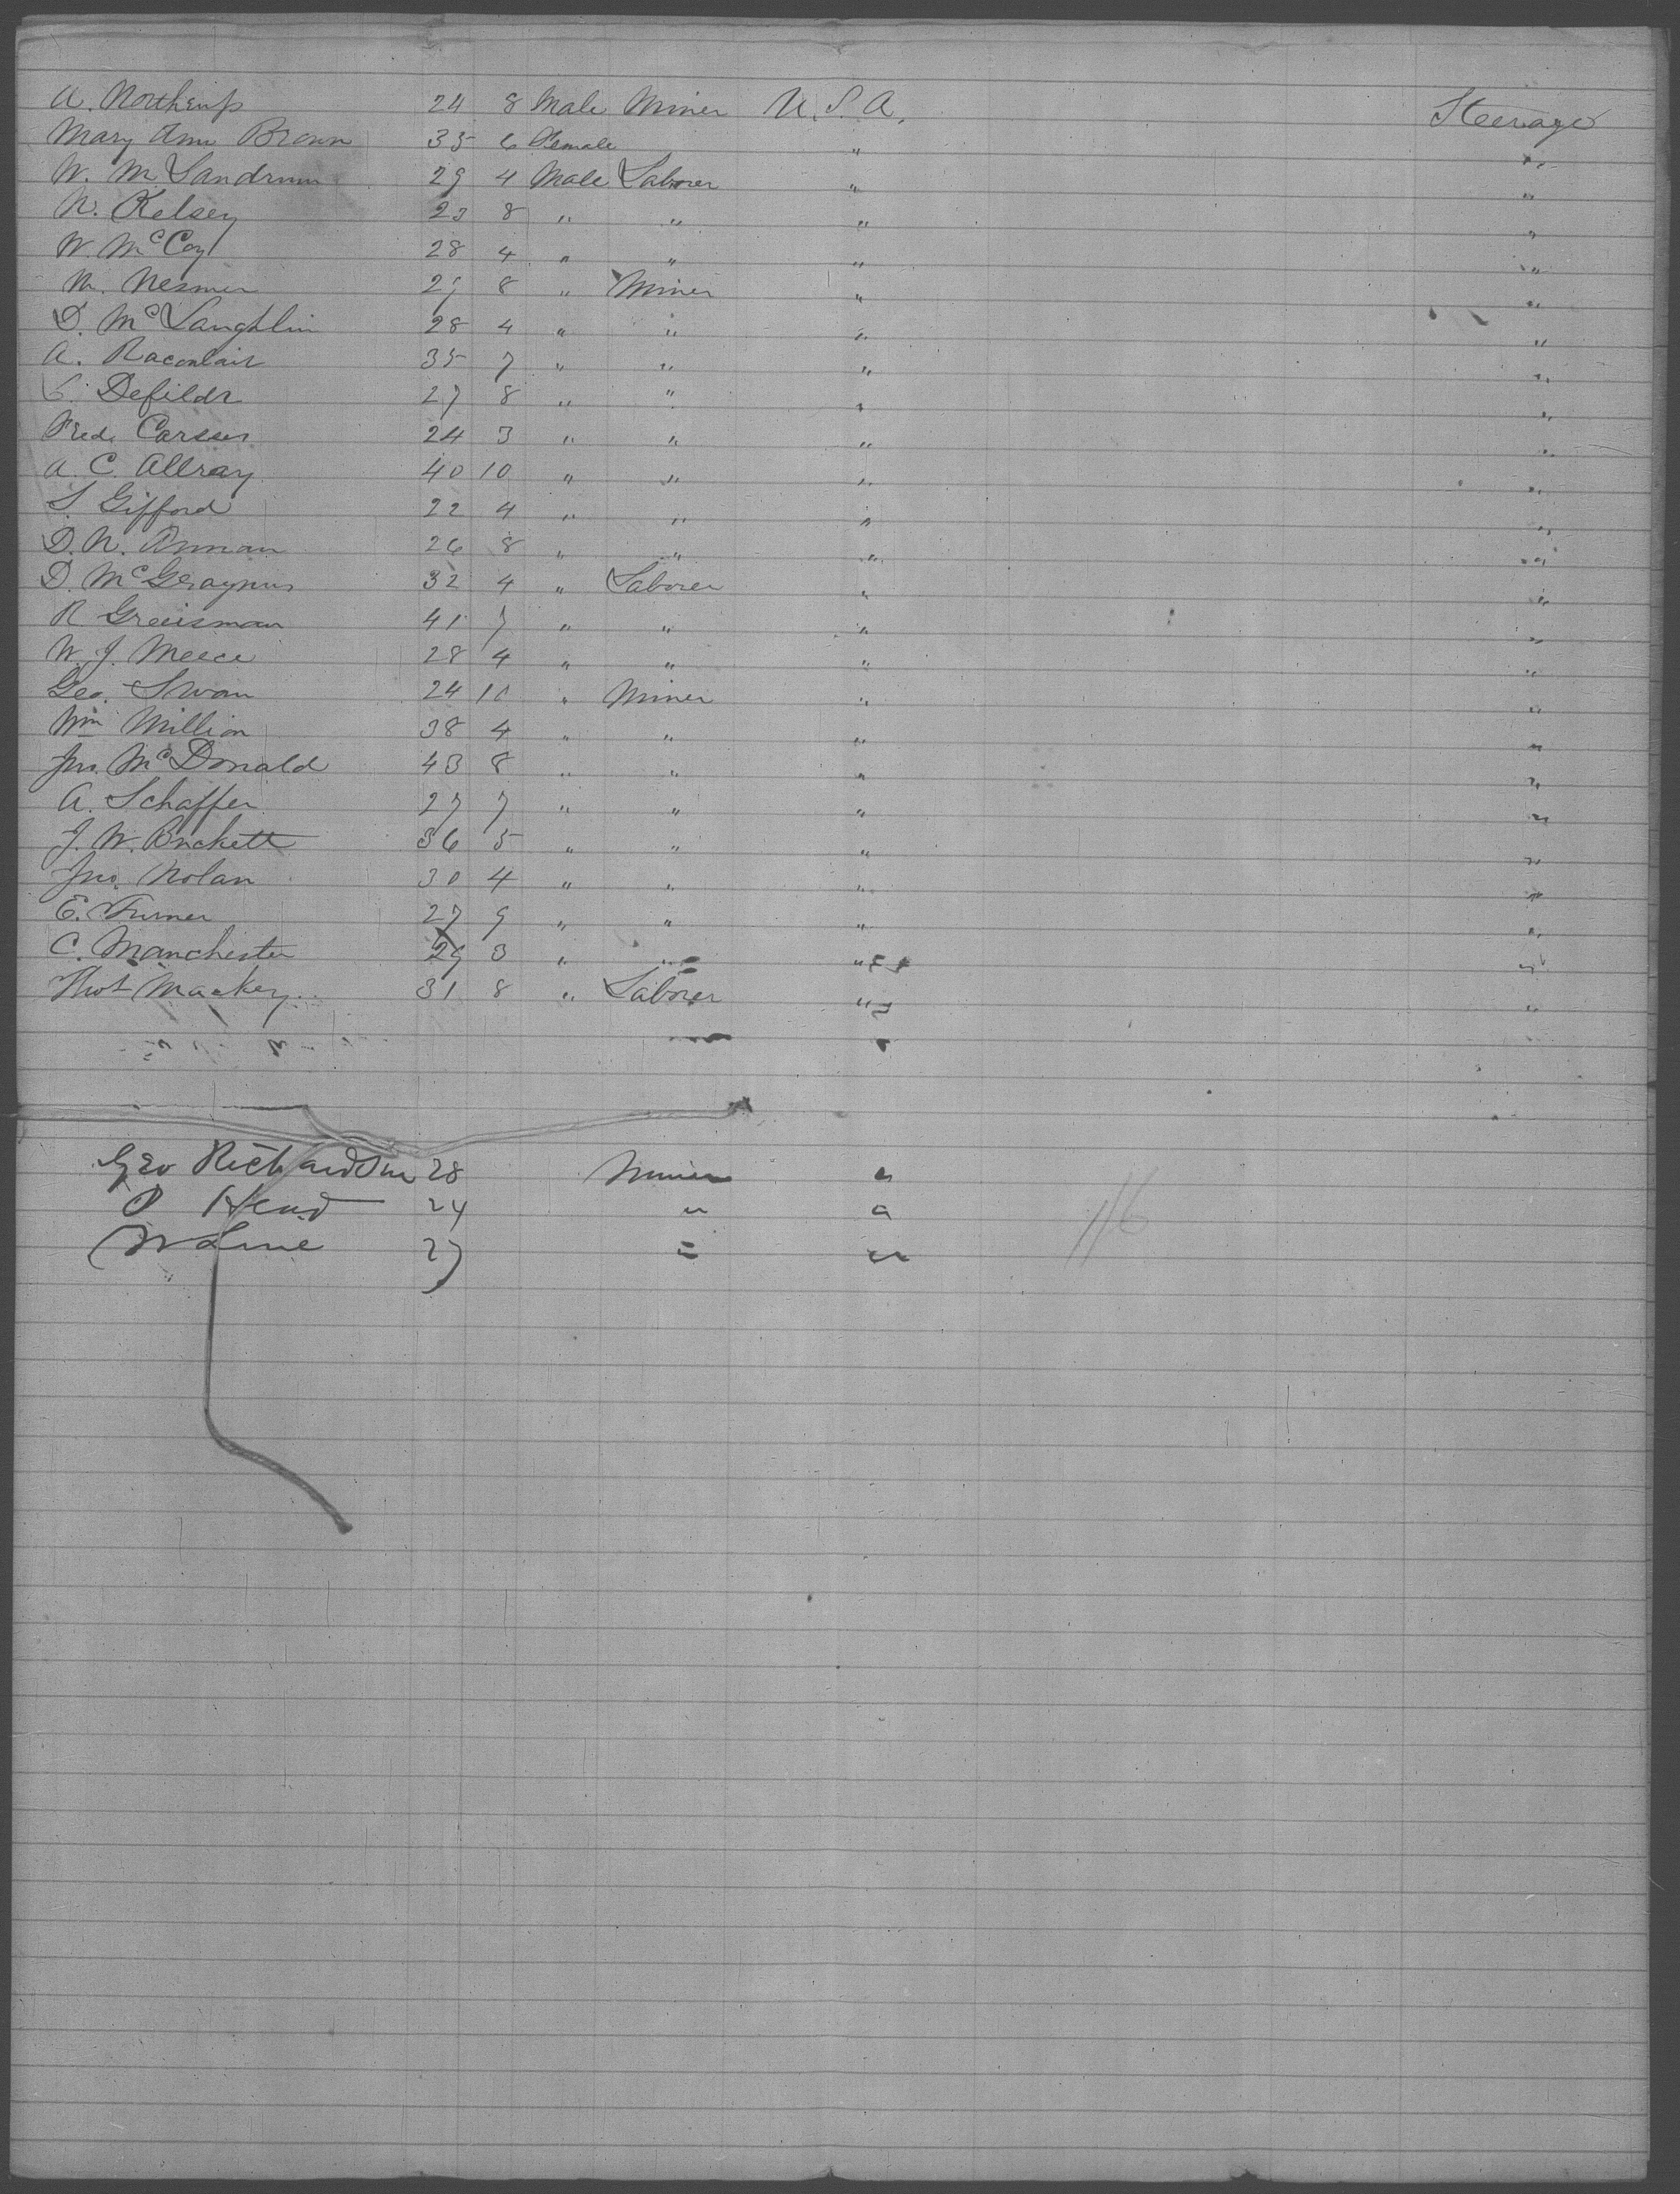 A. Northrup 24 8 Male Miner U.S.A. Steerage
Mary Ann Brown 35 6 Female " "
W. M Landrum 29 4 Male Laborer " "
N. Kelsey 23 8 " " " "
W. McCoy 28 4 " " " "
M. Nesmer 29 8 " Miner " "
D. McLaughlin 28 4 " " " "
A. 35 7 " " " "
Defildr 27 8 " " " "
Fred. Carsser 24 3 " " " "
A. C. Allray 40 10 " " " "
S. Gifford 22 4 " " " "
D. N. 26 8 " " " "
D. 32 4 " Laborer " "
R 41 7 " " " "
W. J. Meece 28 4 " " " "
Geo. Swan 24 10 " Miner " "
Wm Million 38 4 " " " "
Jno. McDonald 43 8 " " " "
A. Schaffer 27 7 " " " "
J. W. Brickett 36 5 " " " "
Jno. Nolan 30 4 " " " "
E. Turner 27 9 " " " "
C. Manchester 29 3 " " " "
Thos Mackey 31 8 " Laborer " "
Geo Richardson 28 Miner "
O Head 24 " "
W Line 27 " "
116